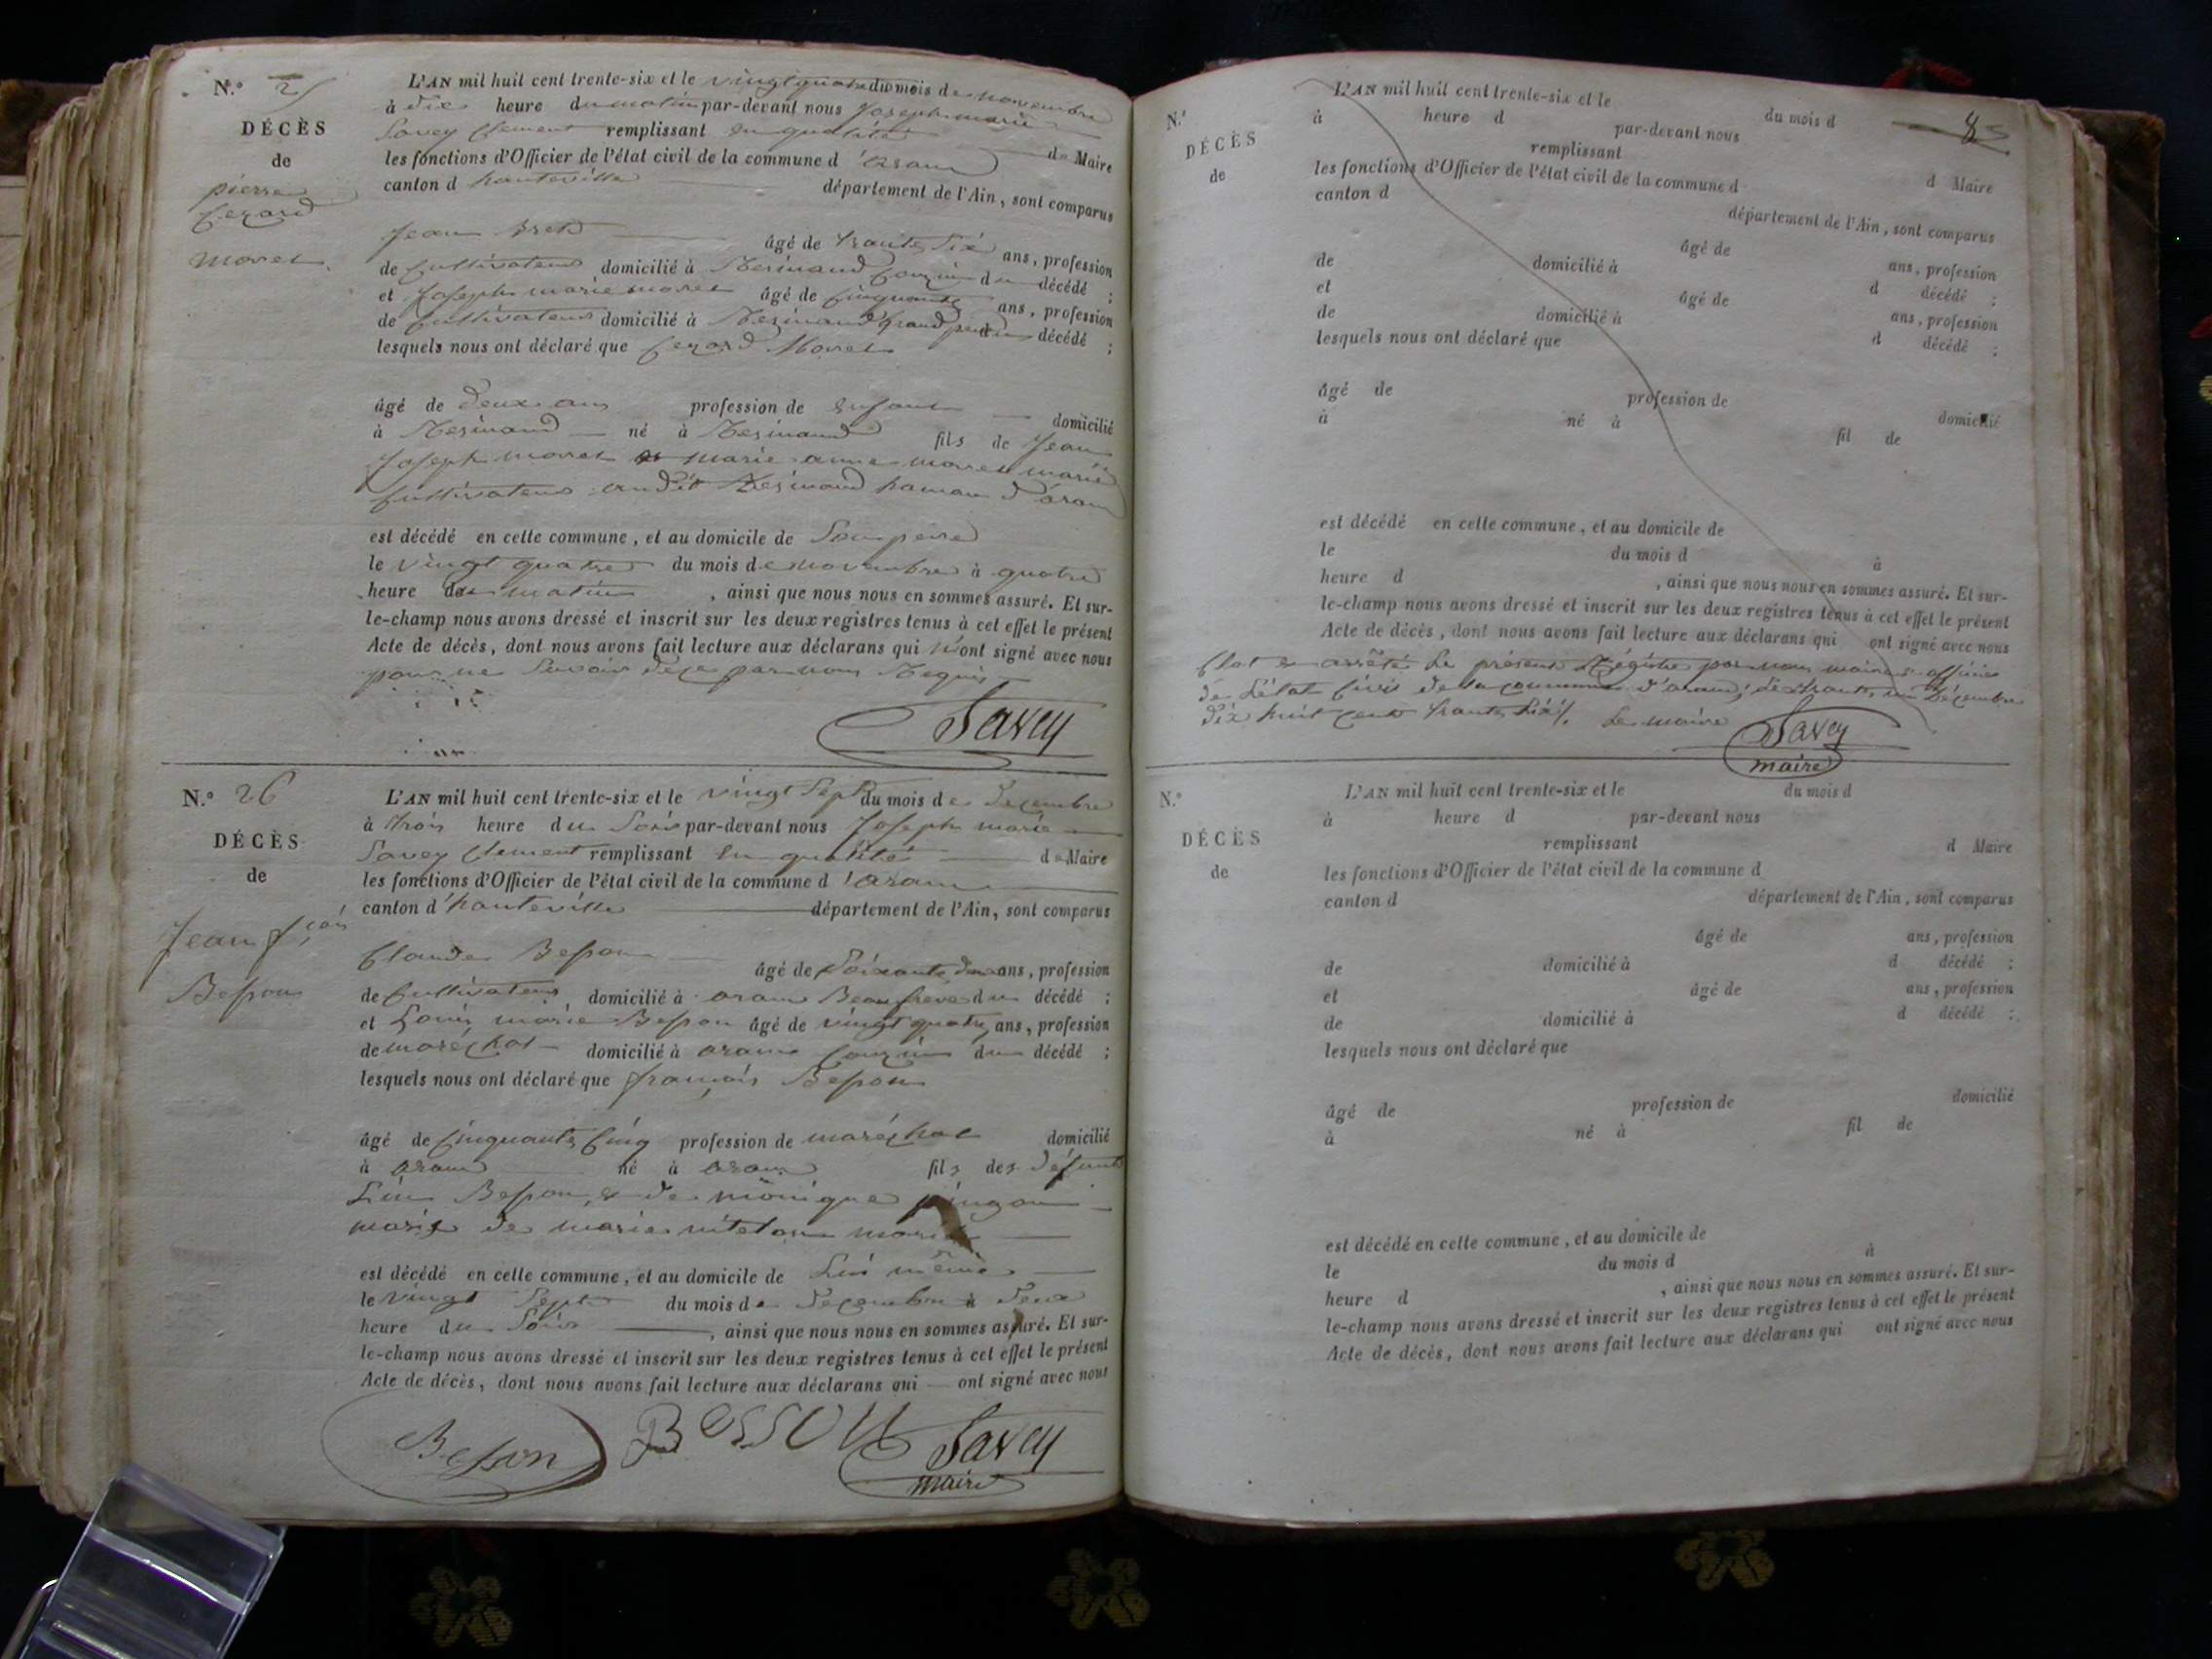 N.° 25
DÉCÈS
de
pierre
Cezard
Morel
L'AN mil huit cent trente-six et le vingt quatre du mois de novembre
à dix heure du matin par-devant nous Joseph marie
Savey Clement remplissant en qualité de Maire
les fonctions d'Officier de l'état civil de la commune d'aranc
canton d hauteville département de l'Ain, sont comparus
Jean âgé de trante Six ans, profession
de Cultivateur domicilié à Resinand Couzin du décédé ;
et Joseph marie morel âgé de Cinquante ans, profession
de Cultivateur domicilié à Resinand grand père du décédé ;
lesquels nous ont déclaré que Cezard Morel
âgé de deux ans profession de Enfant domicilié
à Resinand né à Resinand fils de Jean
Joseph morel et marie anne morel marié
Cultivateur audit Resinand hamau d'aranc
est décédé en cette commune, et au domicile de Son pere
le vingt quatre du mois de novembre à quatre
heure du matin , ainsi que nous nous en sommes assuré. Et sur-
le-champ nous avons dressé et inscrit sur les deux registres tenus à cet effet le présent
Acte de décès, dont nous avons fait lecture aux déclarans qui n'ont signé avec nous
pour ne Savoir de ce par nous Requis
Savey
N.° 26
DÉCÈS
de
Jean f.çois
Besson
L'AN mil huit cent trente-six et le vingt Sept du mois de Decembre
à trois heure du Soir par-devant nous Joseph marie
Savey Clement remplissant en qualité de Maire
les fonctions d'Officier de l'état civil de la commune d'aranc
canton d'hauteville département de l'Ain, sont comparus
Claude Besson âgé de Soixante deux ans, profession
de Cultivateur domicilié à aranc Beaufrere du décédé ;
et Louis marie Besson âgé de vingt quatre ans, profession
de maréchal domicilié à aranc Couzin du décédé ;
lesquels nous ont déclaré que françois Besson
âgé de Cinquante Cinq profession de maréchal domicilié
à aranc né à aranc fils des défunts
Besson et de monique
marié de marie
est décédé en cette commune, et au domicile de Lui même
le vingt Sept du mois de Decembre à deux
heure du Soir , ainsi que nous nous en sommes assuré. Et sur-
le-champ nous avons dressé et inscrit sur les deux registres tenus à cet effet le présent
Acte de décès, dont nous avons fait lecture aux déclarans qui ont signé avec nous
Besson Besson Savey
maire
8
N.°
DÉCÈS
de
L'AN mil huit cent trente-six et le du mois d
à heure d par-devant nous
remplissant d Maire
les fonctions d'Officier de l'état civil de la commune d
canton d département de l'Ain, sont comparus
âgé de ans, profession
de domicilié à d décédé ;
et âgé de ans, profession
de domicilié à d décédé ;
lesquels nous ont déclaré que
âgé de profession de domicilié
à né à fil de
est décédé en cette commune, et au domicile de
le du mois d à
heure d , ainsi que nous nous en sommes assuré. Et sur-
le-champ nous avons dressé et inscrit sur les deux registres tenus à cet effet le présent
Acte de décès, dont nous avons fait lecture aux déclarans qui ont signé avec nous
Clot et arrêté Le présent Régistre par nous maire officier
de L'état Civil de la commune d'aranc, le trante un Décembre
dix huit cent trante Six. Le maire
Savey
maire
N.°
DÉCÈS
de
L'AN mil huit cent trente-six et le du mois d
à heure d par-devant nous
remplissant d Maire
les fonctions d'Officier de l'état civil de la commune d
canton d département de l'Ain, sont comparus
âgé de ans, profession
de domicilié à d décédé ;
et âgé de ans, profession
de domicilié à d décédé ;
lesquels nous ont déclaré que
âgé de profession de domicilié
à né à fil de
est décédé en cette commune, et au domicile de
le du mois d à
heure d , ainsi que nous nous en sommes assuré. Et sur-
le-champ nous avons dressé et inscrit sur les deux registres tenus à cet effet le présent
Acte de décès, dont nous avons fait lecture aux déclarans qui ont signé avec nous